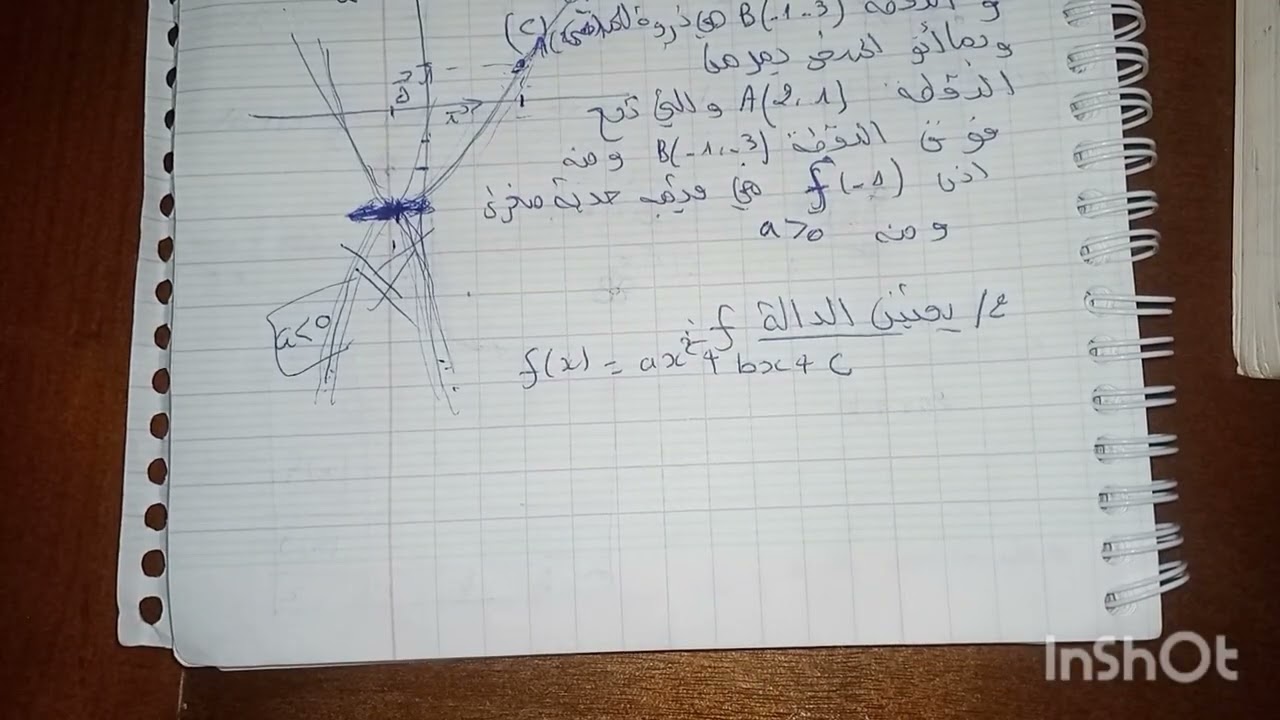 و النقطة B(-1,-3) هي ذروة
(C)
وبما أنو المنحنى يمر من
النقطة A(2,1) و التي تقع
فوق النقطة B(-1,-3) ومنه
اذن f(-1) هي قيمة حدية صغرى
ومنه a>0
a<0
2/ يعين الدالة f:
f(x) = ax²+bx+c
InShOt